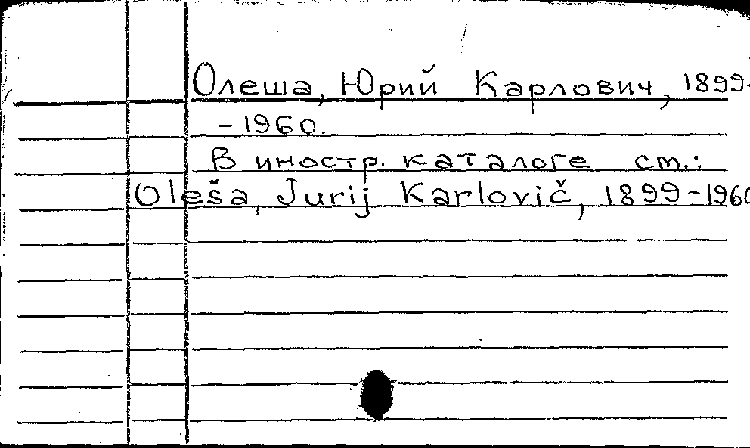 Олеша, Юрий Карлович, 1899-
-1960.
В иностр. каталоге см.:
Oleša, Jurij Karlovič, 1899-1960